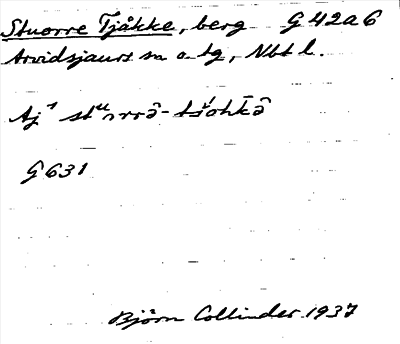 Stuorre Tjåkke, berg G 42a6
Arvidsjaurs sn o. tg, Nbt l.
Aj
G 631
Björn Collinder 1937